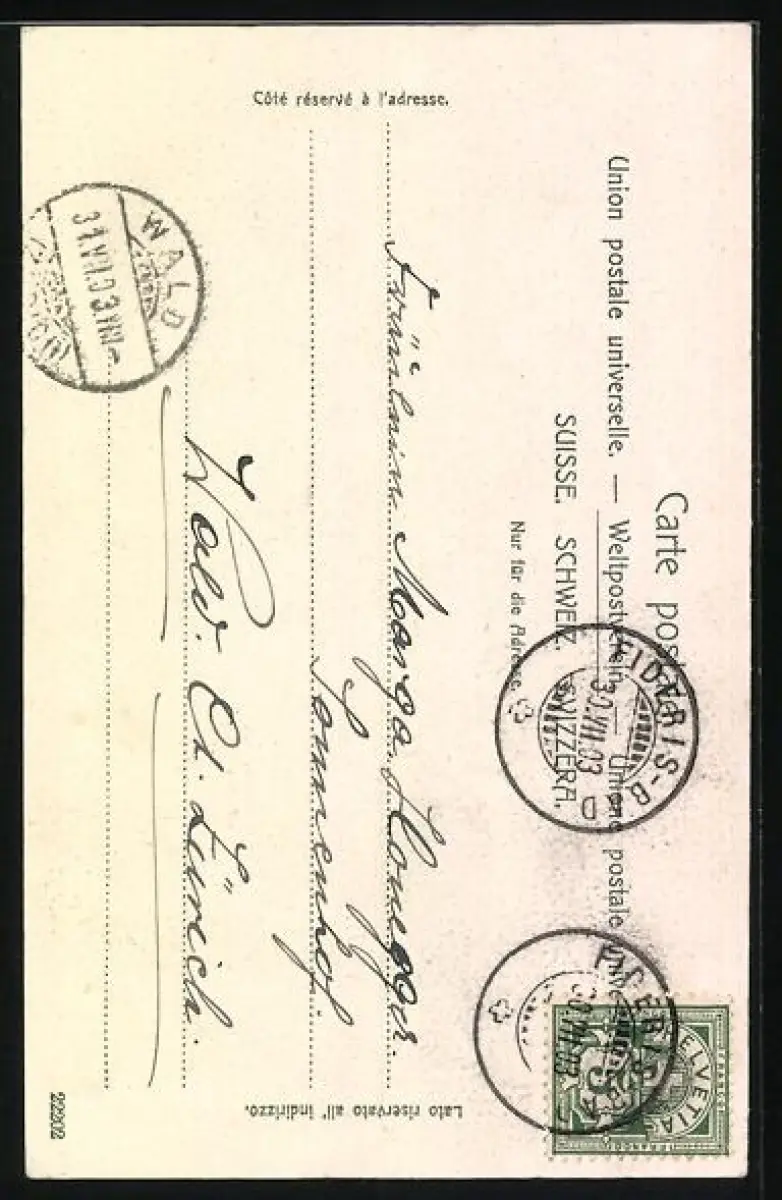 Carte postale.
Union postale universelle. — Weltpostverein. — Unione postale universale.
SUISSE. SCHWEIZ. SVIZZERA.
Nur für die Adresse.
Côté réservé à l'adresse.
Lato riservato all' indirizzo.
FIDERIS-B
30.VII.03
FIDERIS-BA
30.VII.03
HELVETIA
FRANCO
5
Fräulein Marga Honegger.
Sonnenhof.
Wald. Ct. Zürich.
WALD
31.VII.03.VIII-
22202